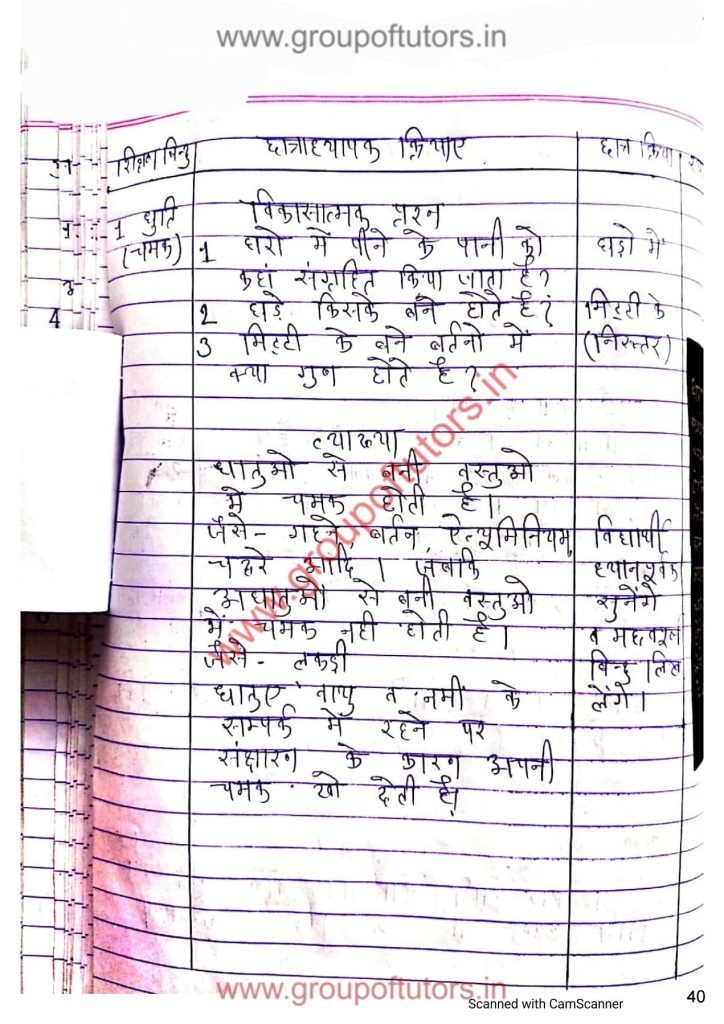 www.groupoftutors.in
शिक्षण बिन्दु
छात्राध्यापक क्रियाए
छात्र क्रिया
1 धुति
(चमक)
विकासात्मक प्रश्न
1 घरो में पीने के पानी को
कहां संग्रहित किया जाता है?
घड़ो में
2 घड़े किसके बने होते है?
मिट्टी के
3 मिट्टी के बने बर्तनो में
क्या गुण होते है?
(निरुत्तर)
4
व्याख्या
धातुओ से बनी वस्तुओ
में चमक होती है।
जैसे- गहने, बर्तन, ऐल्यूमिनियम,
चद्दरे आदि। जबकि
अधातुओ से बनी वस्तुओ
में चमक नही होती है।
जैसे- लकडी
धातुए वायु व नमी के
सम्पर्क में रहने पर
संक्षारण के कारण अपनी
चमक खो देती है।
विद्यार्थी
ध्यानपूर्वक
सुनेंगे
व महत्वपूर्ण
बिन्दु लिख
लेंगे।
www.groupoftutors.in
www.groupoftutors.in
Scanned with CamScanner
40